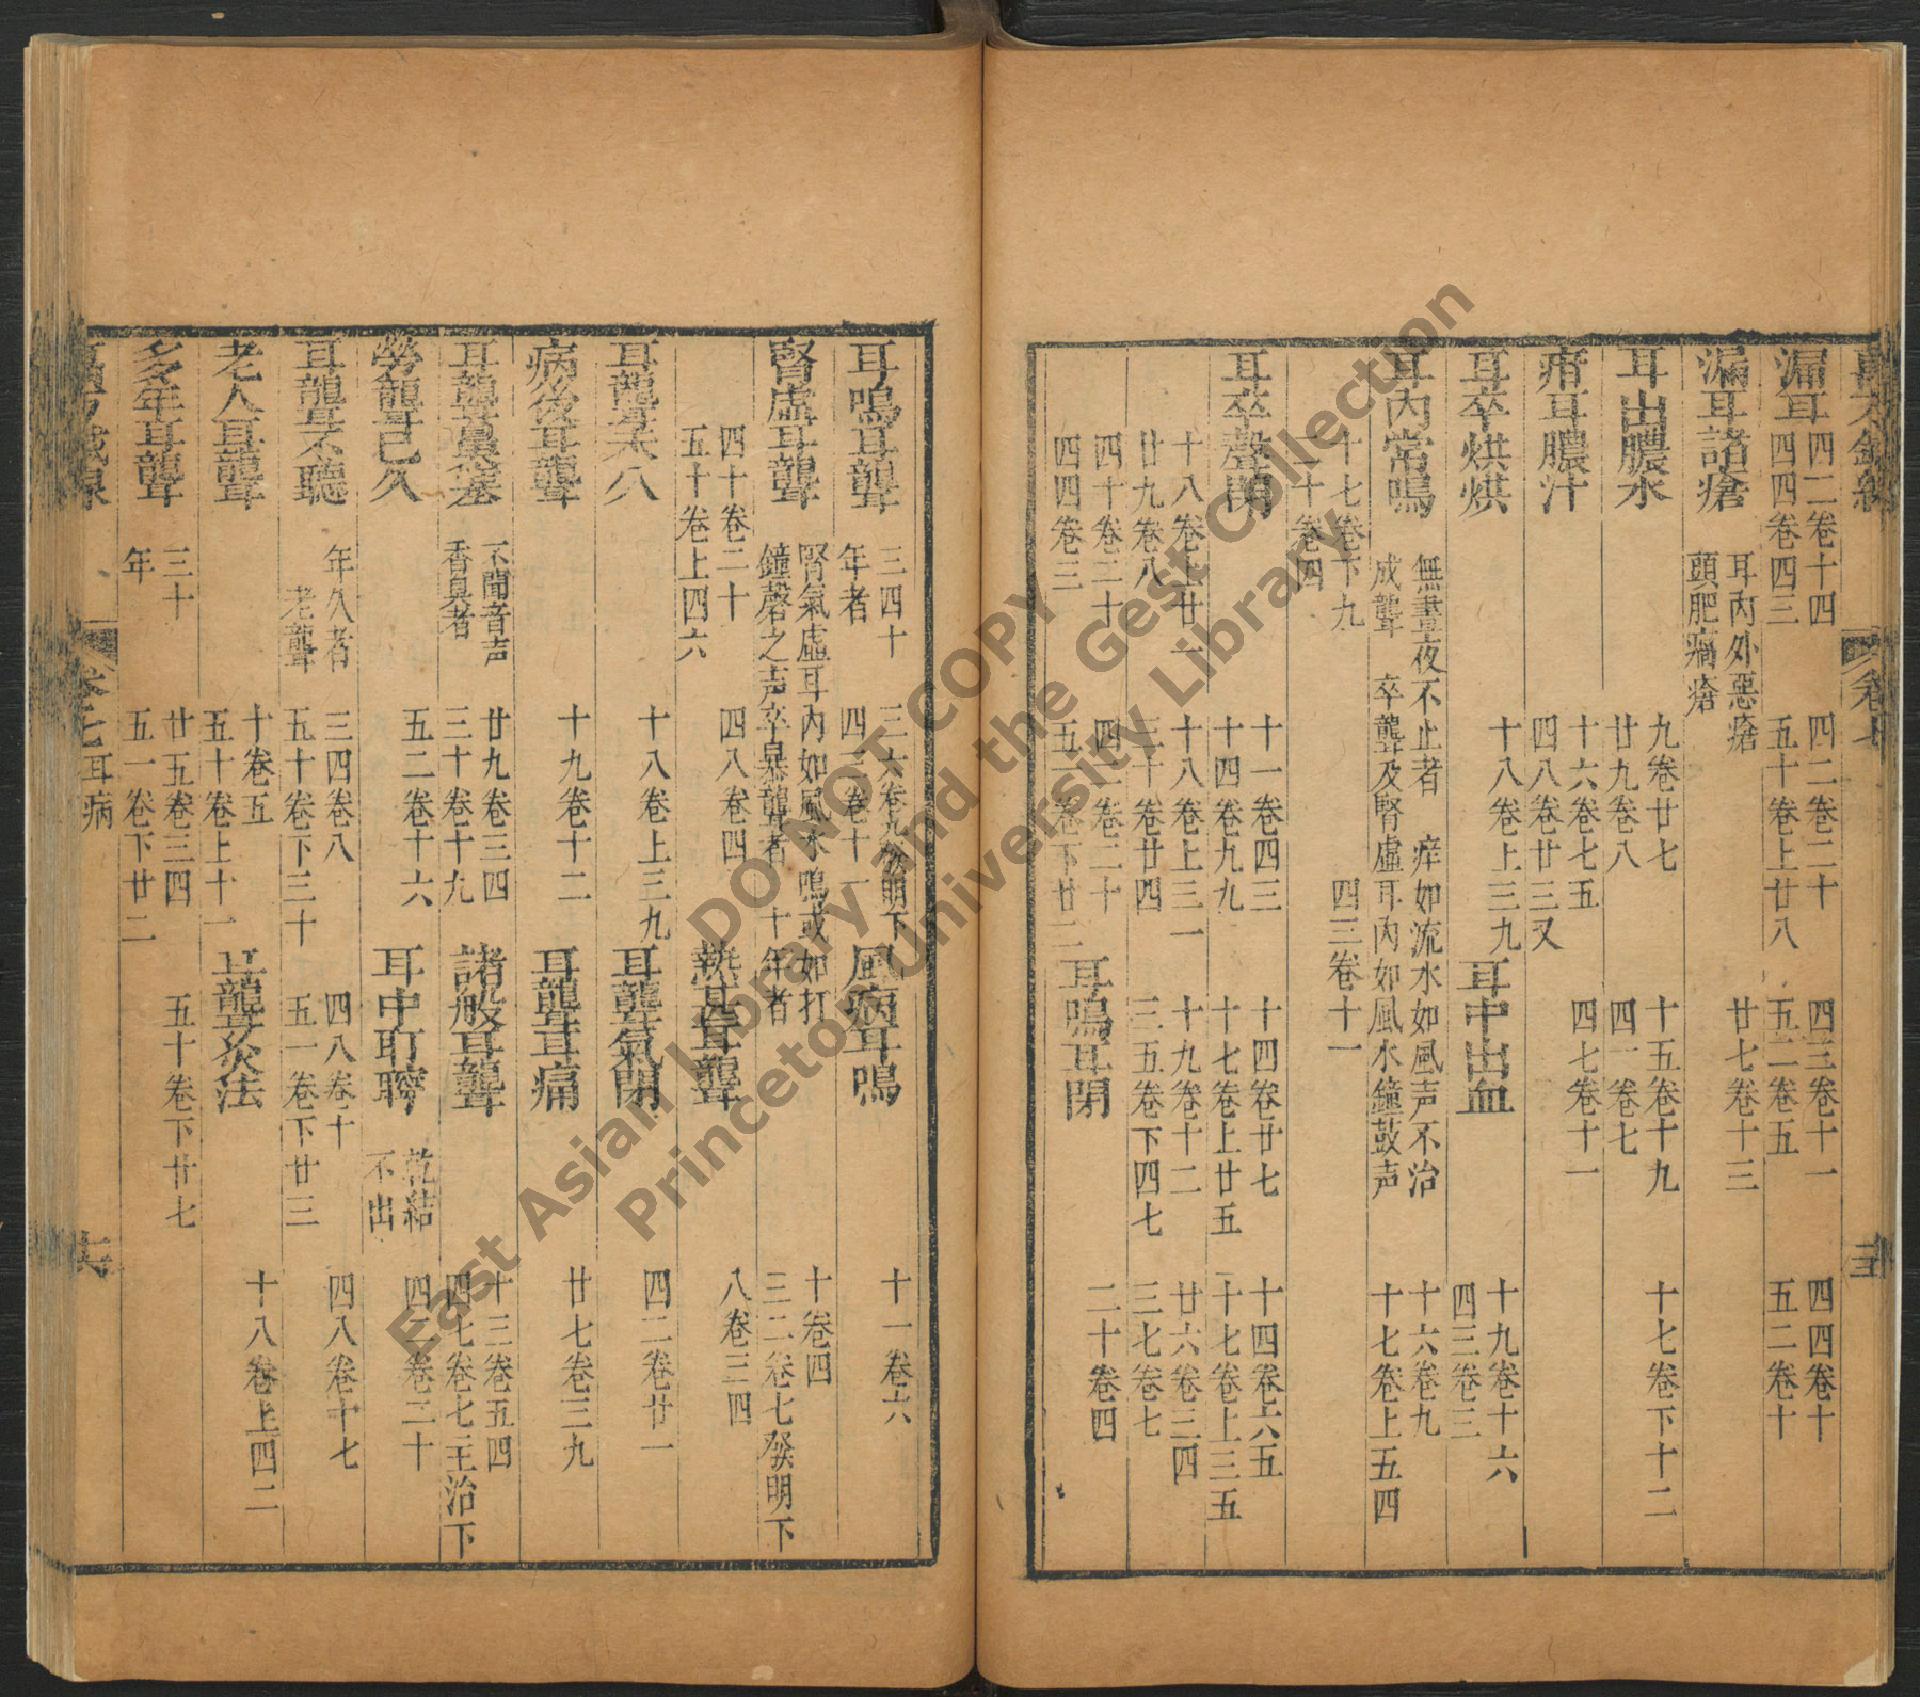 漏耳 四二卷十四 四二卷二十 四三卷十一 四四卷十
四四卷四三 五十卷上廿八 五二卷五 五二卷十
漏耳諸瘡 耳內外惡瘡 廿七卷十三
頭肥瘡
耳出膿水 九卷廿七 十五卷十九 十七卷下十二
廿九卷八 四一卷七
疳耳膿汁 十六卷七五 四七卷十一
四八卷廿三又
耳卒烘烘 十八卷上三九 耳中出血 十九卷十六
四三卷三
耳內常鳴 無晝夜不止者 痒如流水如風声不治 十六卷九
成聾 卒聾及腎虛耳內如風水鐘鼓声 十七卷上五四
十七卷下九 四三卷十一
二十卷四
耳卒聾閉 十一卷四三 十四卷廿七 十四卷六五
十四卷九九 十七卷上廿五 十七卷上三五
十八卷上廿一 十八卷上三一 十九卷十二 廿六卷三四
廿九卷八 三十卷廿四 三五卷下四七 三七卷七
四十卷二十 四二卷二十 耳鳴耳閉 二十卷四
四四卷三 五一卷下廿二
耳鳴耳聾 三四十 三六卷九發明下 風病耳鳴 十一卷六
年者 四二卷十一
腎虛耳聾 腎氣虛耳內如風水鳴或如打 十卷四
鐘磬之声卒暴聾者 十年者 三二卷七發明下
四十卷二十 四八卷四 熱甚耳聾 八卷三四
五十卷上四六
耳聾未久 十八卷上三九 耳聾氣閉 四二卷廿一
病後耳聾 十九卷十二 耳聾耳痛 廿七卷三九
耳聾鼻塞 不聞音声 廿九卷三四 諸般耳聾 十三卷五四
香臭者 三十卷十九 四七卷七主治下
勞聾已久 五二卷十六 耳中耵聹 乾結 四二卷二十
不出
耳聾不聽 年久者 三四卷八 四八卷十 四八卷十七
老聾 五十卷下三十 五一卷下廿三
老人耳聾 十卷五 耳聾灸法 十八卷上四二
五十卷上十一
多年耳聾 三十 廿五卷三四 五十卷下廿七
年 五一卷下廿二
卷七耳病
DO NOT COPY
East Asian Library and the Gest Collection
Princeton University Library